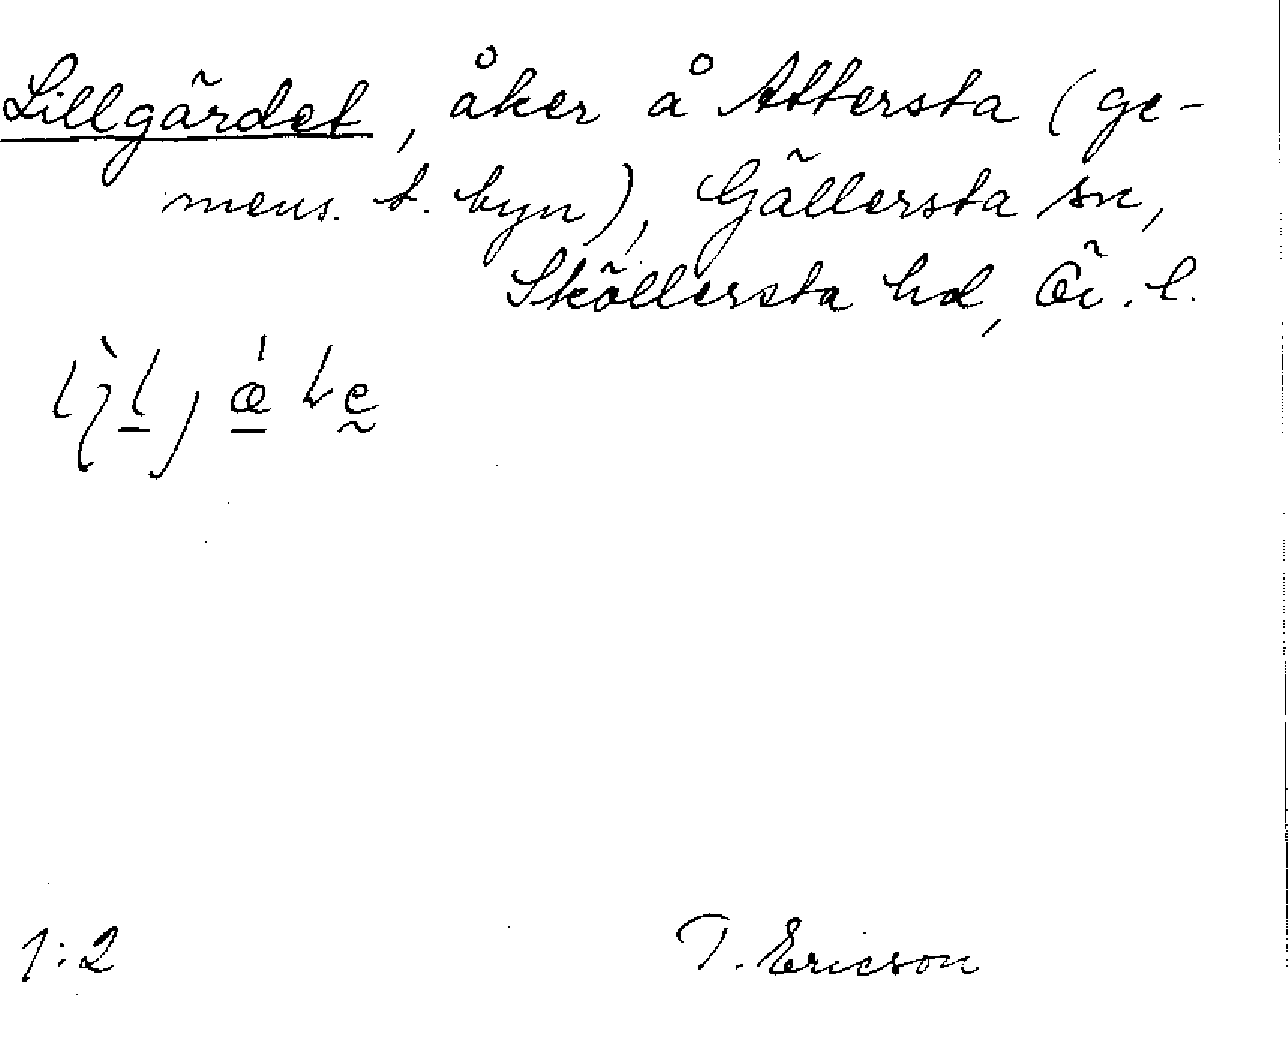 Lillgärdet, åker å Attersta (ge-
mens. t. byn), Gällersta sn,
Sköllersta hd, Ör. l.
1:2 T. Ericson